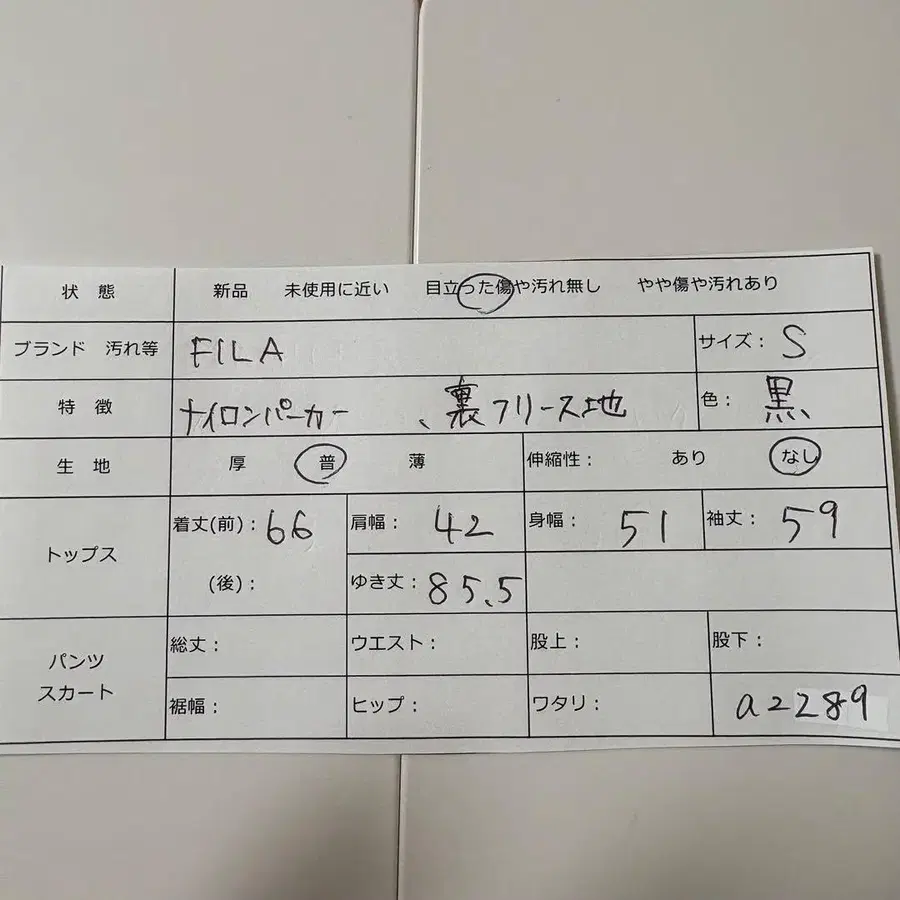 状 態 新品 未使用に近い 目立った傷や汚れ無し やや傷や汚れあり
ブランド 汚れ等 FILA サイズ： S
特 徴 ナイロンパーカー 、裏フリース地 色： 黒
生 地 厚 普 薄 伸縮性： あり なし
トップス 着丈(前)：66 肩幅： 42 身幅： 51 袖丈： 59
(後)： ゆき丈：85.5
パンツ スカート 総丈： ウエスト： 股上： 股下：
裾幅： ヒップ： ワタリ： a2289